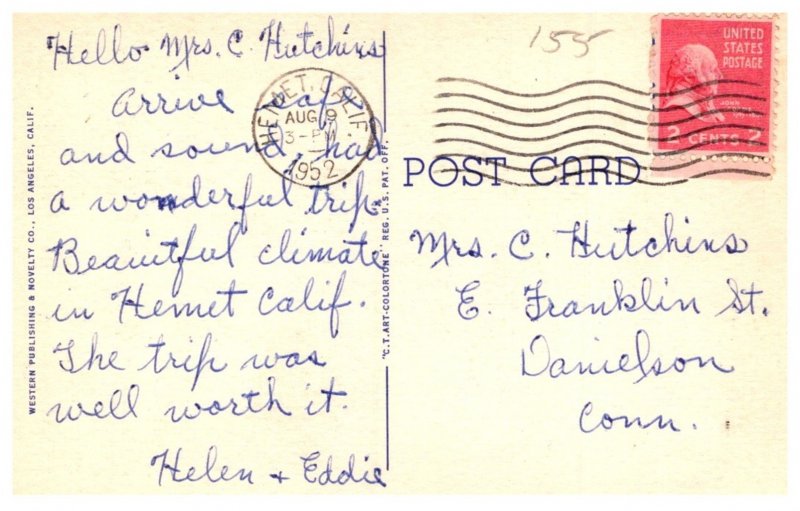 Hello Mrs. C. Hutchins
Arrive safe
and sound, had
a wonderful trip.
Beauitful climate
in Hemet Calif.
The trip was
well worth it.
Helen + Eddie
155
HEMET, CALIF.
AUG 9
3-PM
1952
UNITED
STATES
POSTAGE
JOHN
2 CENTS 2
POST CARD
Mrs. C. Hutchins
E. Franklin St.
Danielson
Conn.
WESTERN PUBLISHING & NOVELTY CO., LOS ANGELES, CALIF.
"C.T. ART-COLORTONE" REG. U.S. PAT. OFF.